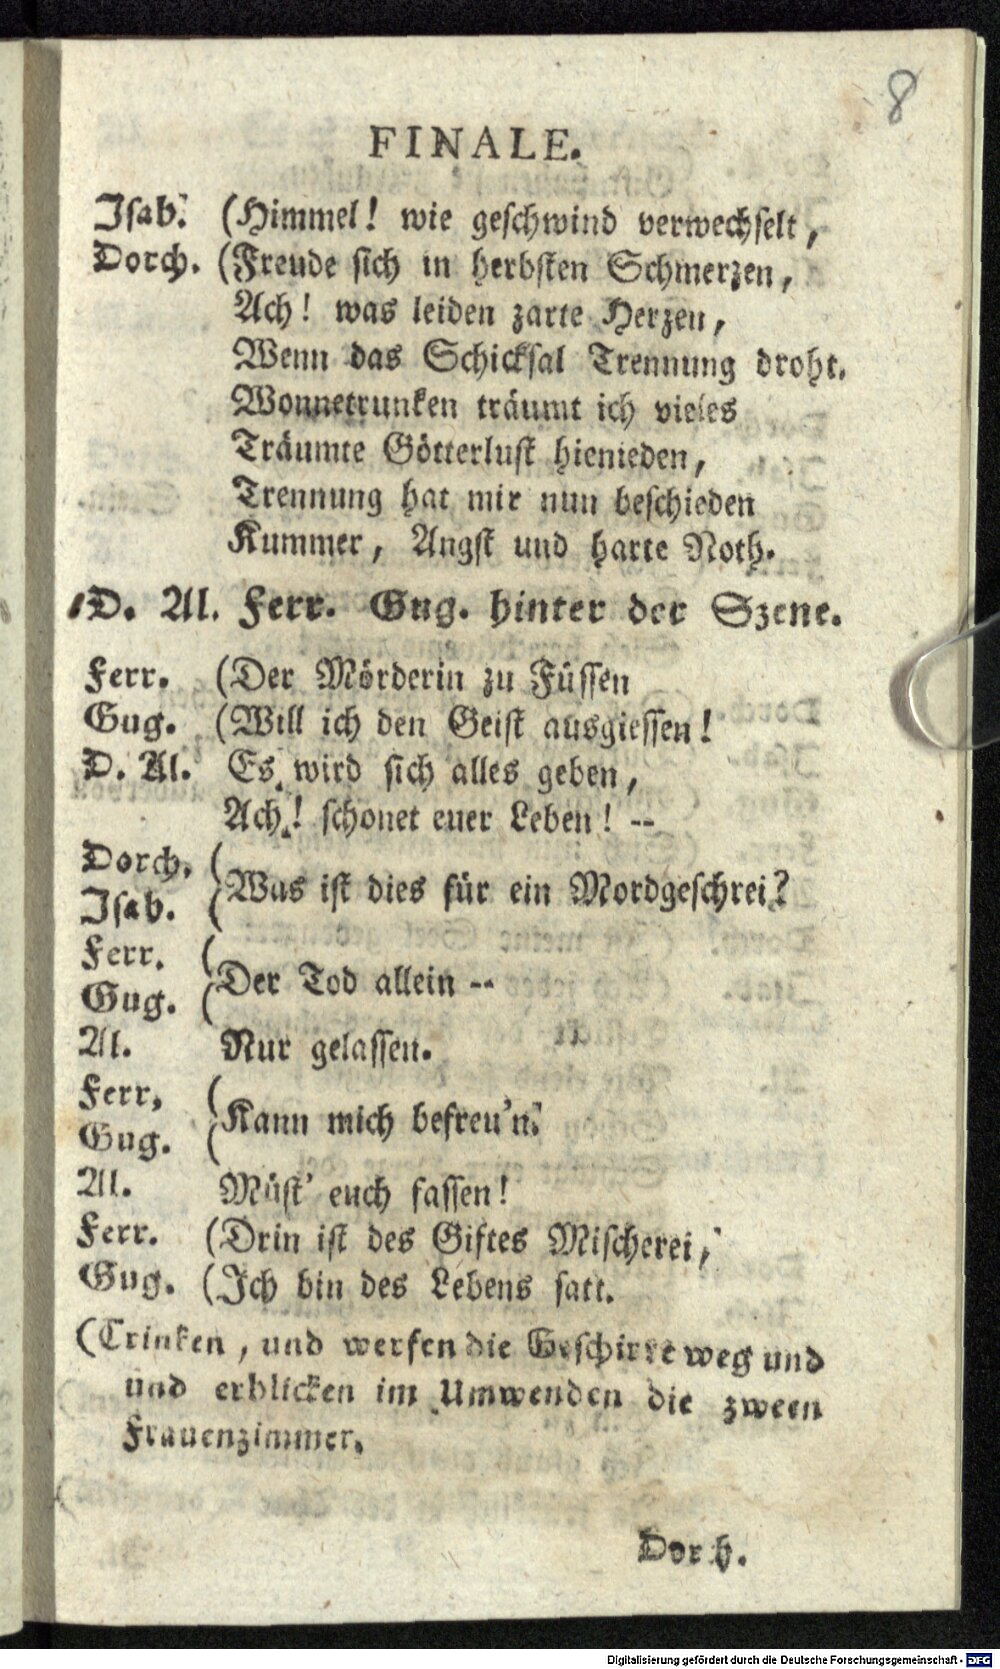 8
FINALE.
Isab. (Himmel! wie geschwind verwechselt,
Dorch. (Freude sich in herbsten Schmerzen,
Ach! was leiden zarte Herzen,
Wenn das Schicksal Trennung droht.
Wonnetrunken träumt ich vieles
Träumte Götterlust hienieden,
Trennung hat mir nun beschieden
Kummer, Angst und harte Noth.
D. Al. Ferr. Gug. hinter der Szene.
Ferr. (Der Mörderin zu Füssen
Gug. (Will ich den Geist ausgiessen!
D. Al. Es wird sich alles geben,
Ach! schonet euer Leben! --
Dorch. (
Was ist dies für ein Mordgeschrei?
Isab. (
Ferr. (
Der Tod allein --
Gug. (
Al. Nur gelassen.
Ferr, (
Kann mich befreu'n.
Gug. (
Al. Müst' euch fassen!
Ferr. (Drin ist des Giftes Mischerei,
Gug. (Ich bin des Lebens satt.
(Trinken, und werfen die Geschirre weg und
und erblicken im Umwenden die zween
Frauenzimmer.
Dorch.
Digitalisierung gefördert durch die Deutsche Forschungsgemeinschaft - DFG